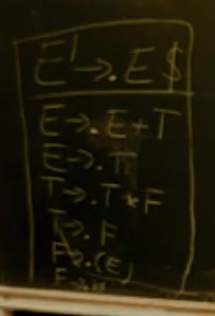 E' →. E $
E →. E + T
E →. T
T →. T * F
T →. F
F →. (E)
F →.